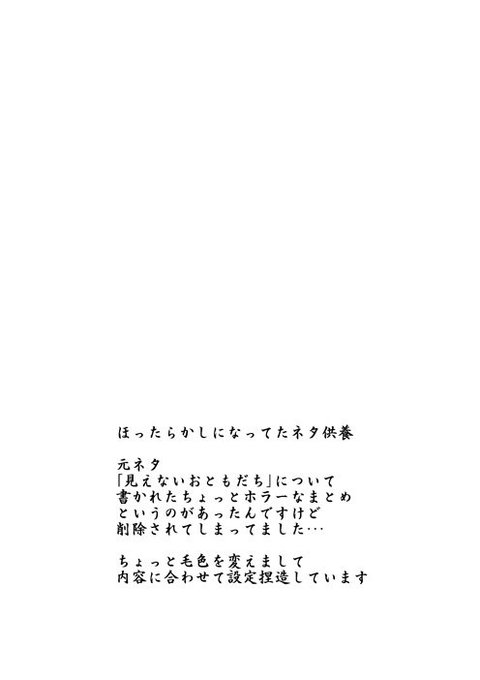 ほったらかしになってたネタ供養
元ネタ
「見えないおともだち」について
書かれたちょっとホラーなまとめ
というのがあったんですけど
削除されてしまってました…
ちょっと毛色を変えまして
内容に合わせて設定捏造しています